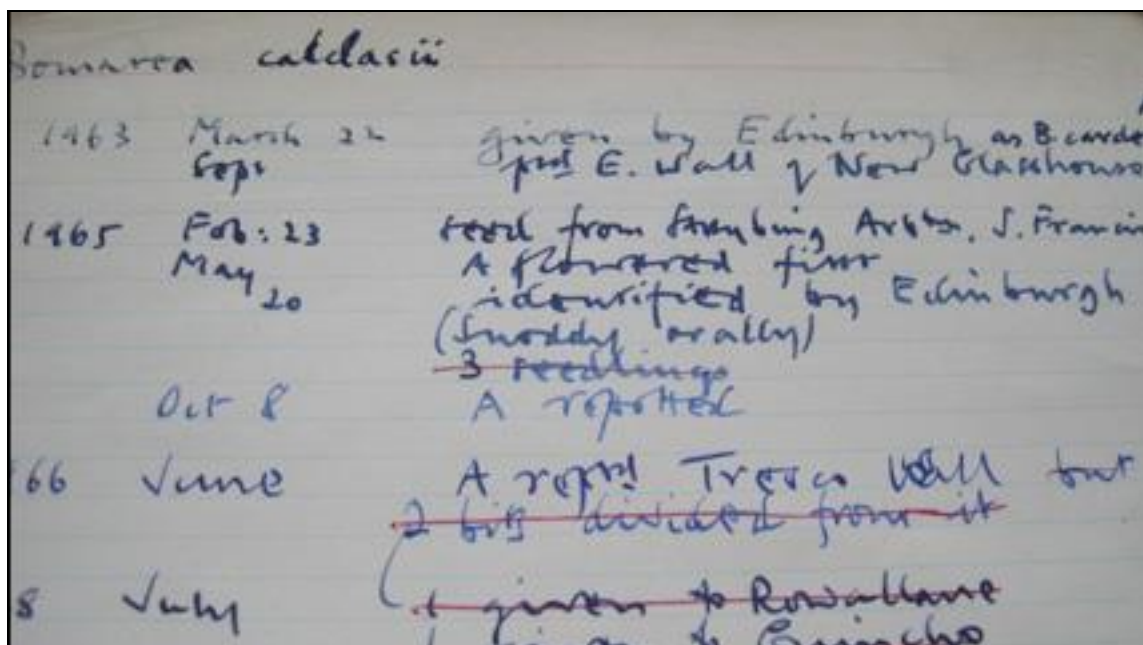 Bomarea caldasii
1963 March 22 given by Edinburgh as B. carde
Sept pltd E. Wall of New Glasshouse
1965 Feb: 23 seed from Strybing Arbtm, S. Franci
May A flowered first
20 identified by Edinburgh
(Snoddy orally)
3 seedlings
Oct 8 A repotted
66 June A Tresco Wall but
2 bits divided from it
8 July 1 given to Rowallane
1 given to Guincho